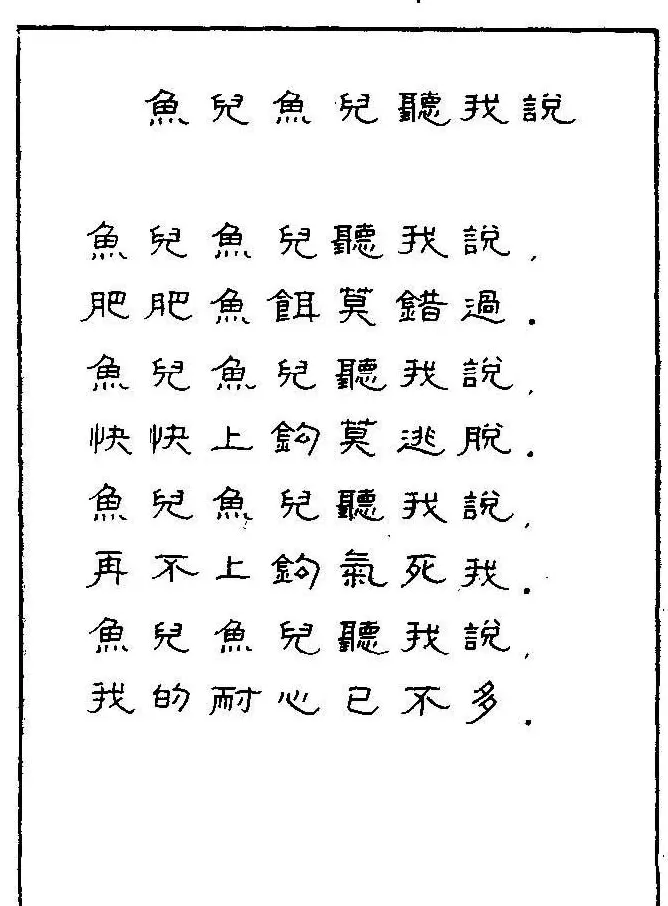 魚兒魚兒聽我說
魚兒魚兒聽我說,
肥肥魚餌莫錯過.
魚兒魚兒聽我說,
快快上鈎莫逃脫.
魚兒魚兒聽我說,
再不上鈎氣死我.
魚兒魚兒聽我說,
我的耐心已不多.